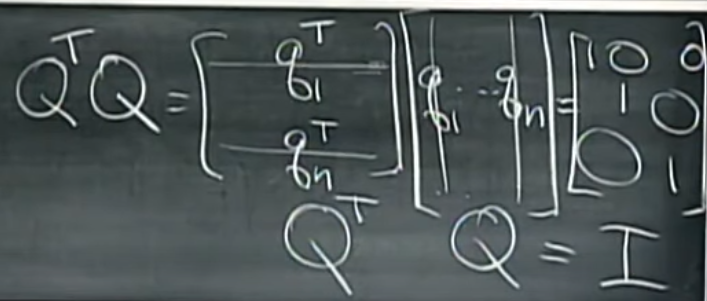 QᵀQ = [q₁ᵀ qₙᵀ] [q₁ ... qₙ] = [1 0 0 1 0 0 1]
Qᵀ Q = I